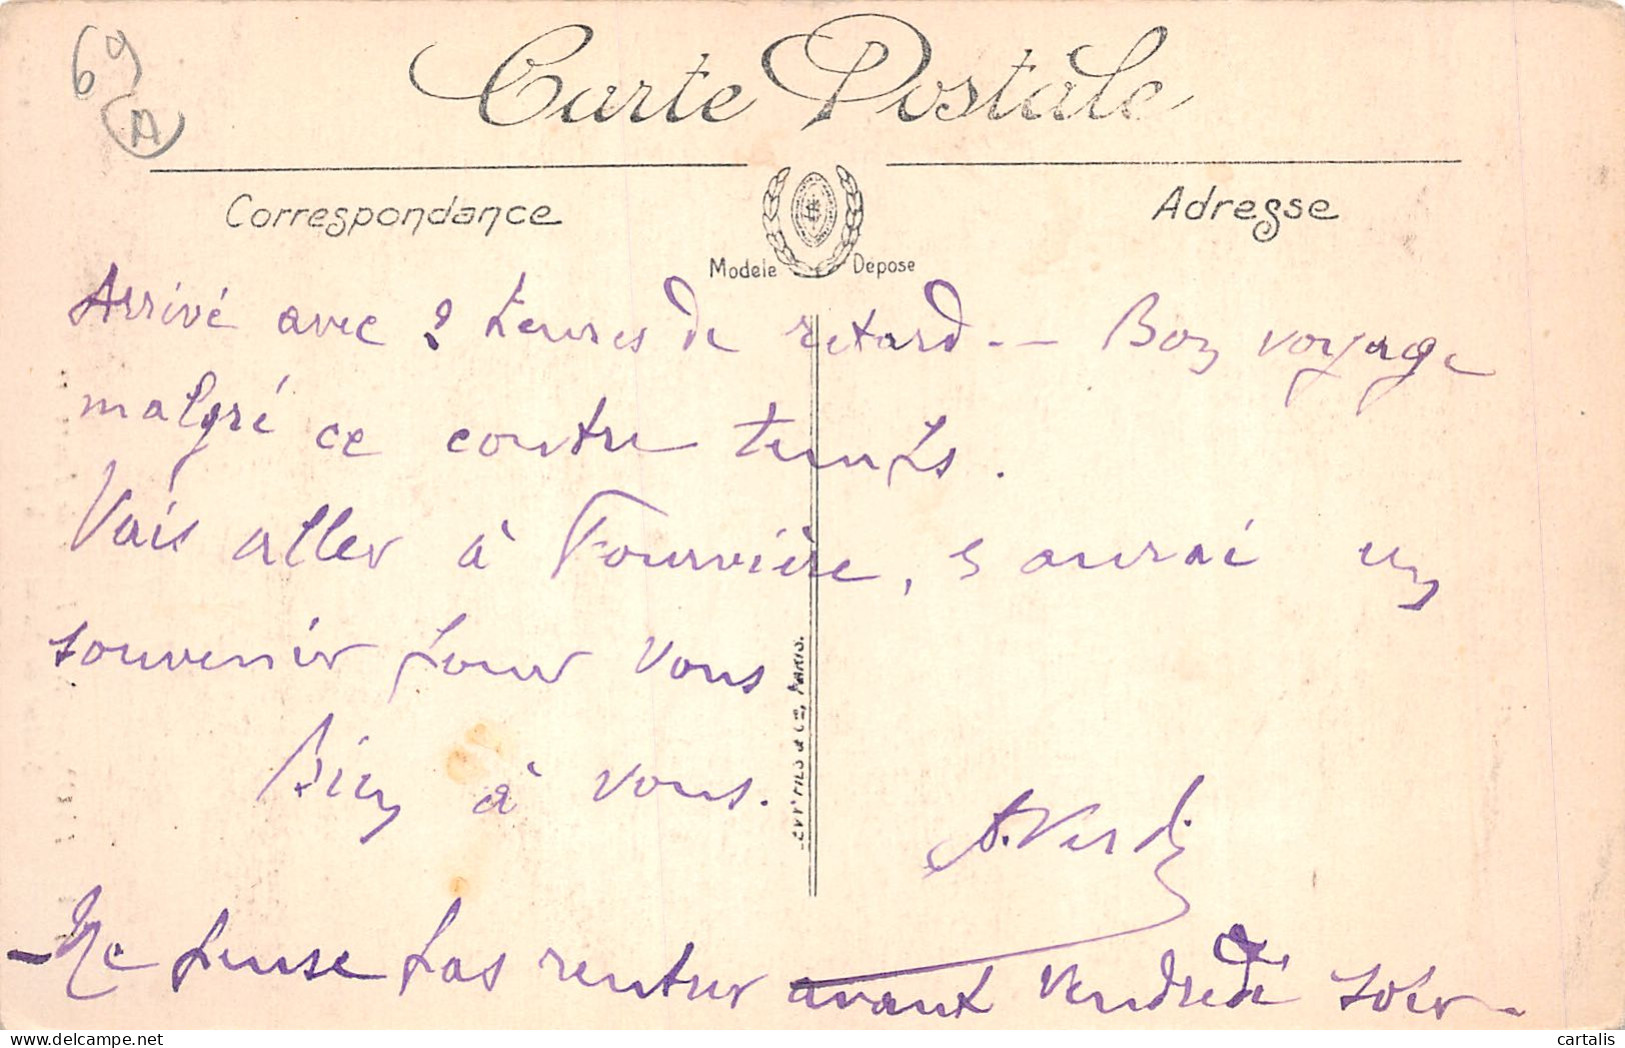 69
A
Carte Postale
Correspondance
Adresse
Modèle Déposé
Arrivé avec 2 heures de retard -- Bon voyage
malgré ce contre temps.
Vais aller à Fourvière, s aurai un
souvenir pour vous
Bien à vous.
A. Verdi
Ne pense pas rentrer avant vendredi soir -
LEVY FILS & Cie, PARIS.
cartalis